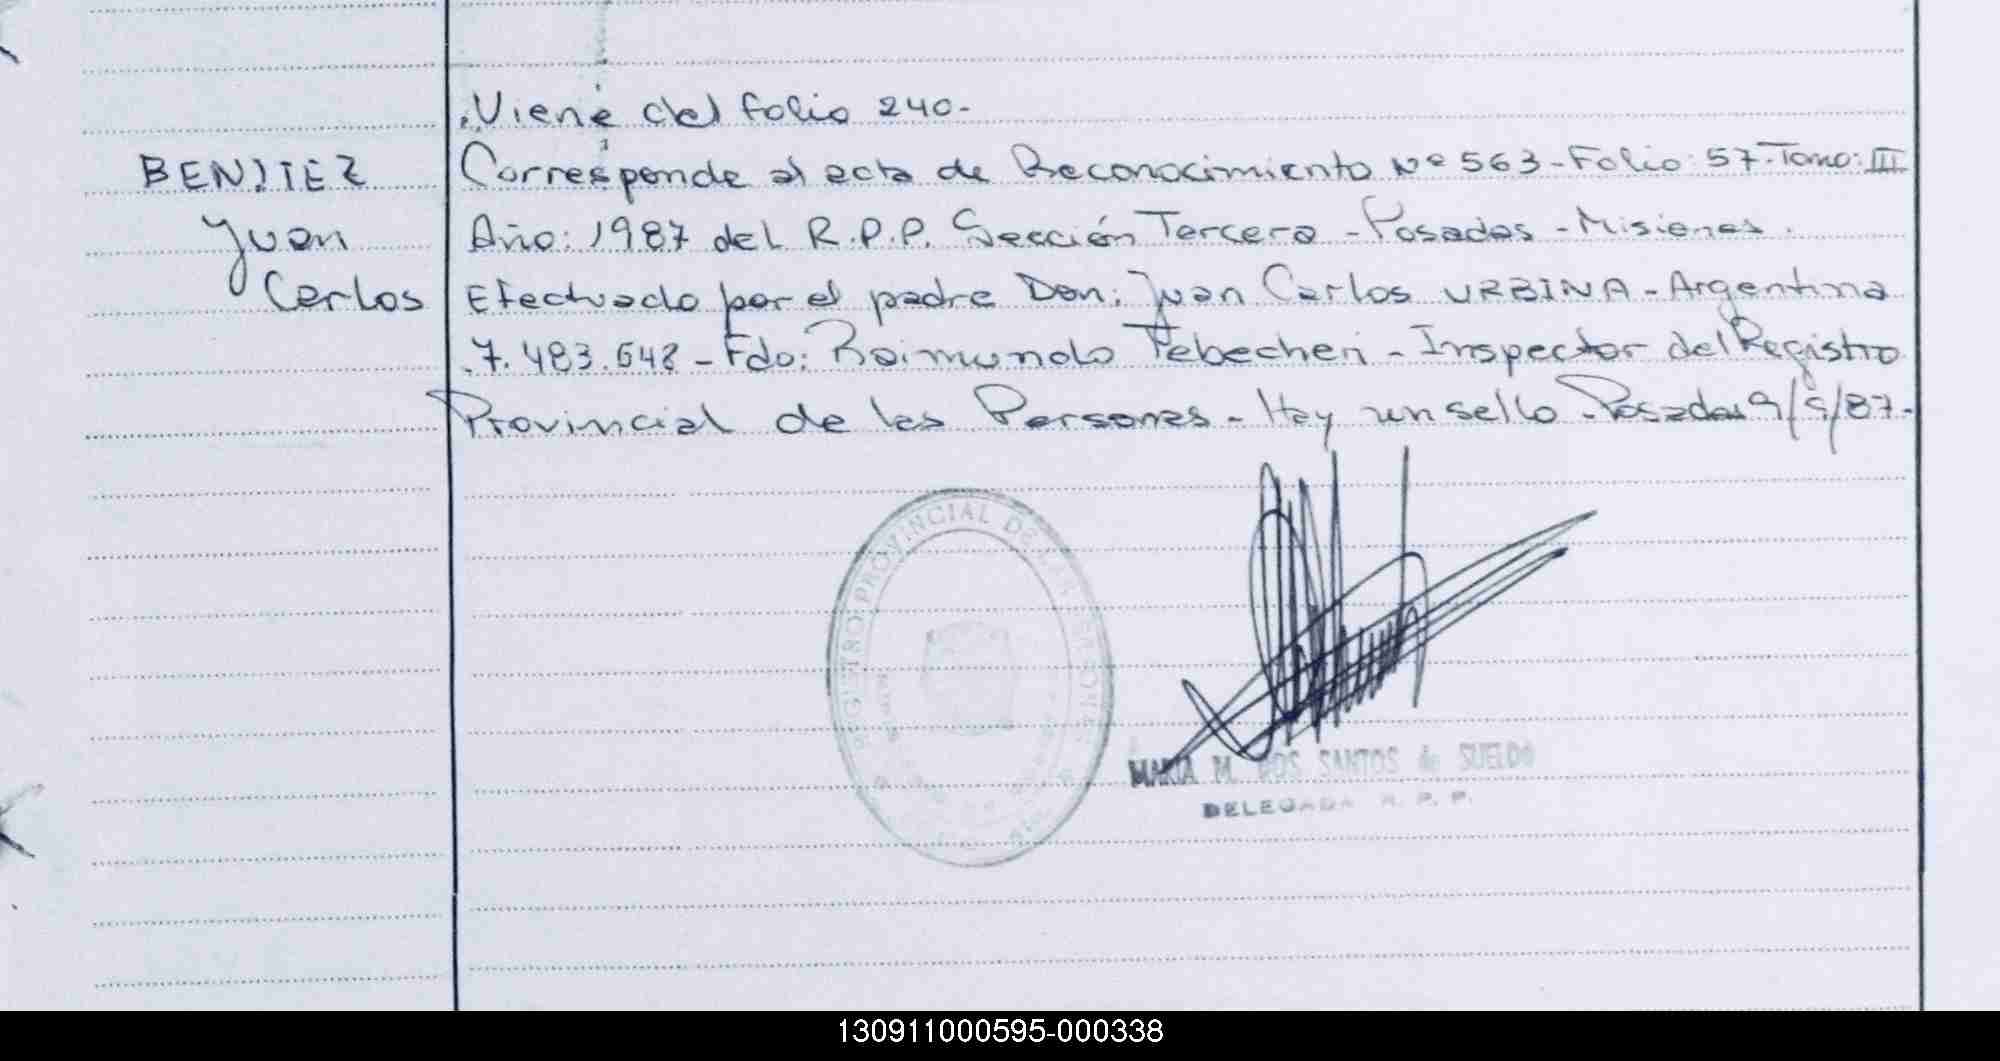 Viene del folio 240-
BENITEZ
Juan
Carlos
Corresponde al acta de Reconocimiento Nº 563 - Folio: 57 - Tomo: III
Año: 1987 del R.P.P. Sección Tercera - Posadas - Misiones.
Efectuado por el padre Don: Juan Carlos URBINA - Argentina
7.483.648 - Fdo: Raimundo Febecheri - Inspector del Registro
Provincial de las Personas - Hay un sello - Posadas 9/9/87.-
REGISTRO PROVINCIAL DE LAS PERSONAS
MARIA M. DOS SANTOS de SUELDO
DELEGADA R. P. P.
130911000595-000338